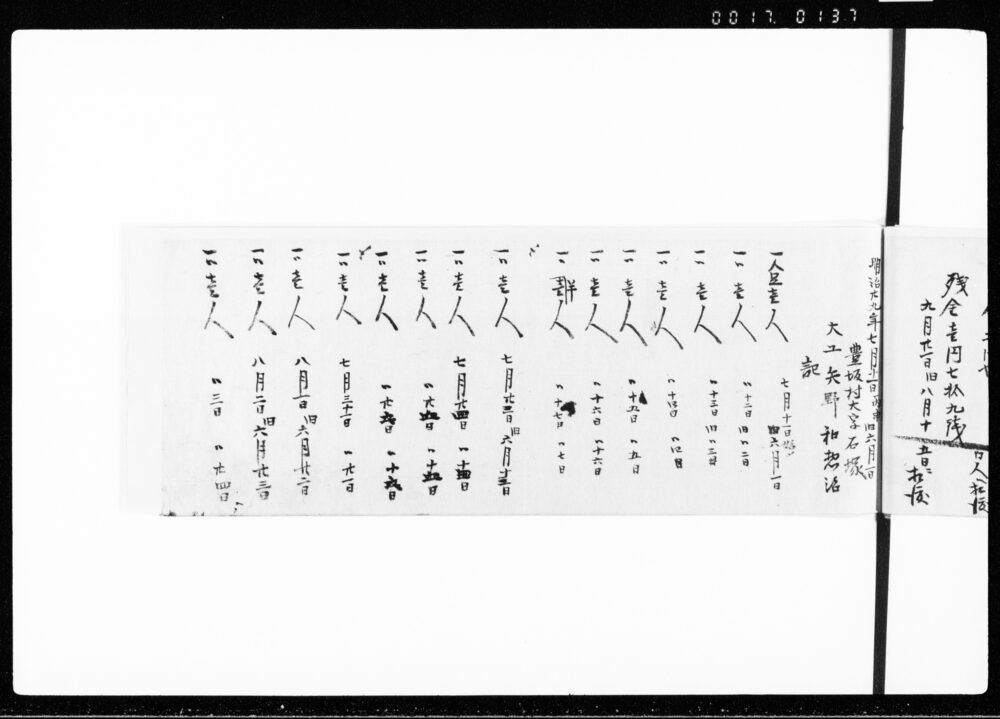 0017 0137
残金壱円七拾九銭
九月廿一日旧八月十五日ニ払済
明治廿九年七月十一日 旧六月一日
豊坂村大字石塚
大工矢野和惣治
記
一人足壱人 七月十一日 旧六月一日
一〃壱人 〃十二日 旧〃二日
一〃壱人 〃十三日 旧〃三日
一〃壱人 〃十四日 〃四日
一〃壱人 〃十五日 〃五日
一〃壱人 〃十六日 〃十六日
一〃壱人半 〃十七日 〃七日
一〃壱人 七月廿三日 旧六月十三日
一〃壱人 七月廿四日 〃十四日
一〃壱人 〃廿五日 〃十五日
一〃壱人 〃廿六日 〃十六日
一〃壱人 七月三十一日 〃廿一日
一〃壱人 八月一日 旧六月廿二日
一〃壱人 八月二日 旧六月廿三日
一〃壱人 〃三日 〃廿四日